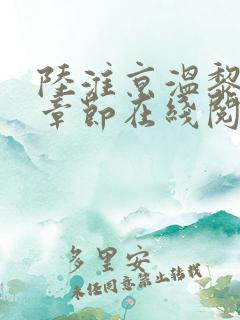 陆淮京温黎
章节在线阅
多里安
未经同意禁止转载